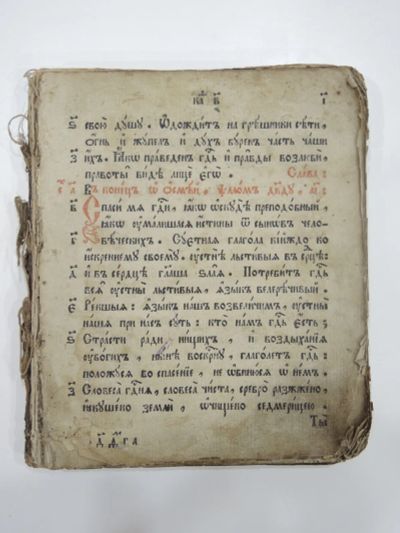 каѳ в҃ і҃
ѕ҃ свою̀ дꙋ́шꙋ. Ѿдожди́тъ на грѣ́шники сѣ́ти,
ѻ҆́гнь и҆ жꙋ́пелъ и҆ дꙋ́хъ бꙋ́ренъ ча́сть ча́ши
з҃ и҆́хъ. Ꙗ҆́кѡ пра́веденъ гдⷭ҇ь и҆ пра́вды возлюбѝ,
правоты̑ ви́дѣ лицѐ є҆гѡ̀. Сла́ва:
В коне́цъ ѡ҆ ѻ҆смѣ́й, ѱало́мъ дв҃дꙋ, а҃і:
в҃ Спаси́ мѧ гдⷭ҇и, ꙗ҆́кѡ ѡ҆скꙋдѣ̀ преподо́бный,
ꙗ҆́кѡ ᲂу҆ма́лишасѧ и҆́стины ѿ сыно́въ чело-
г҃ вѣ́ческихъ. Сꙋ́єтнаѧ глаго́ла кі́йждо ко
и҆́скреннемꙋ своемꙋ̀. ᲂу҆стнѣ̀ льсти́выѧ в се́рдцѣ:
д҃ и҆ в се́рдцѣ глаго́лаша ѕла́ѧ. Потреби́тъ гдⷭ҇ь
всѧ̑ ᲂу҆стны̀ льсти́выѧ, ѧ҆зы́къ велерѣ́чивый.
є҃ Ре́кшыѧ: ѧ҆зы́къ на́шъ возвели́чимъ, ᲂу҆стны̀
на́шѧ при на́съ сꙋ́ть: кто̀ на́мъ гдⷭ҇ь є҆́сть;
ѕ҃ Стра́сти ра́ди ни́щихъ, и҆ воздыха́нїѧ
ᲂу҆бо́гихъ, ны́нѣ воскрⷭ҇нꙋ̀, глаго́летъ гдⷭ҇ь:
положꙋ́сѧ во сп҃се́нїе, не ѡ҆биню́сѧ ѡ҆ не́мъ.
з҃ Словеса̀ гдⷭ҇нѧ, словеса̀ чи́ста, сребро̀ разжже́но,
и҆скꙋше́но землѝ, ѡ҆чи́щено седмери́цею.
Ты̀